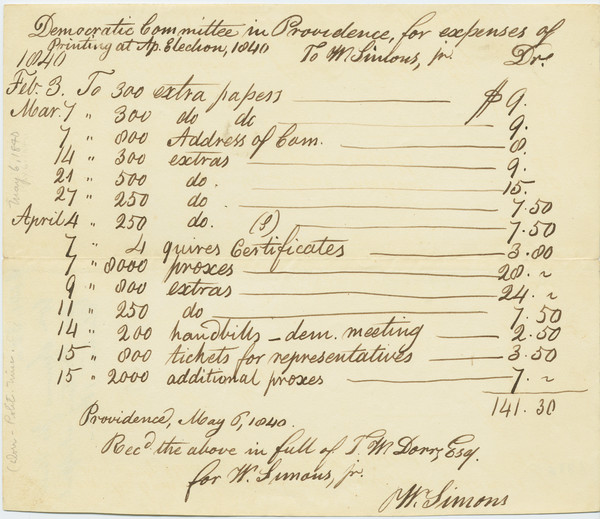 Democratic Committee in Providence, for expenses of
Printing at Ap. Election, 1840
1840 To W. Simons, jr. Dr.
Feb. 3. To 300 extra papers $9.
Mar. 7 " 300 do do 9.
7 " 800 Address of Com. 8.
14 " 300 extras 9.
21 " 500 do. 15.
27 " 250 do. 7.50
April 4 " 250 do. (P) 7.50
7 " 4 quires Certificates 3.80
7 " 8000 proxes 28. ~
9 " 800 extras 24. ~
11 " 250 do 7.50
14 " 200 handbills - dem. meeting 2.50
15 " 800 tickets for representatives 3.50
15 " 2000 additional proxes 7. ~
141.30
Providence, May 6, 1840.
Rec'd the above in full of T. W. Dorr, Esq.
for W. Simons, jr.
W. Simons
May 6, 1840